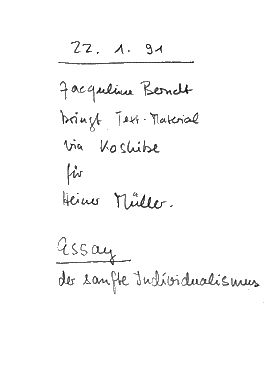 22. 1. 91
Jacqueline Berndt
bringt Text-Material
via Koshibe
für
Heiner Müller.
Essay
der sanfte Individualismus